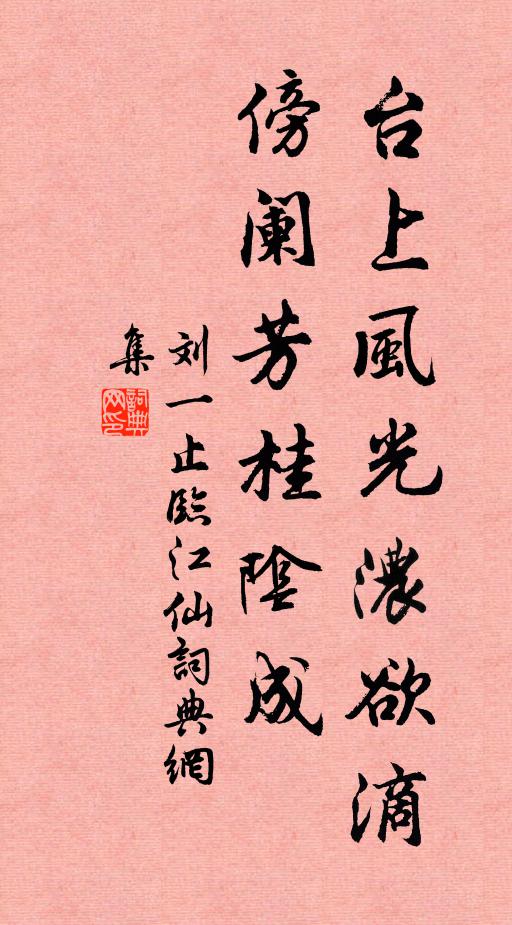 台上風光濃欲滴
傍阑芳桂陰成
刘一止臨江仙詞典網
集
詞典网印